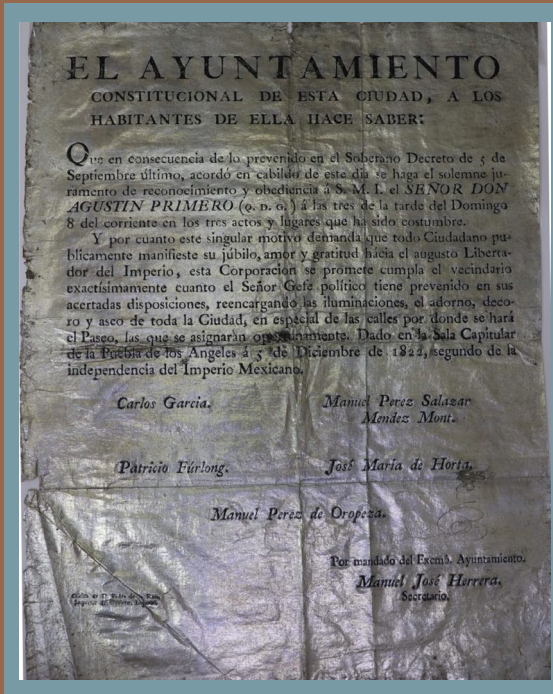 EL AYUNTAMIENTO
CONSTITUCIONAL DE ESTA CIUDAD, A LOS
HABITANTES DE ELLA HACE SABER:
Que en consecuencia de lo prevenido en el Soberano Decreto de 5 de
Septiembre último, acordó en cabildo de este dia se haga el solemne ju-
ramento de reconocimiento y obediencia á S. M. I. el SEÑOR DON
AGUSTIN PRIMERO (Q. D. G.) á las tres de la tarde del Domingo
8 del corriente en los tres actos y lugares que ha sido costumbre.
Y por cuanto este singular motivo demanda que todo Ciudadano pu-
blicamente manifieste su júbilo, amor y gratitud hácia el augusto Liberta-
dor del Imperio, esta Corporacion se promete cumpla el vecindario
exactísimamente cuanto el Señor Gefe político tiene prevenido en sus
acertadas disposiciones, reencargando las iluminaciones, el adorno, deco-
ro y aseo de toda la Ciudad, en especial de las calles por donde se hará
el Paseo, las que se asignarán oportunamente. Dado en la Sala Capitular
de la Puebla de los Angeles á 5 de Diciembre de 1822, segundo de la
independencia del Imperio Mexicano.
Carlos Garcia.
Manuel Perez Salazar
Mendez Mont.
Patricio Fúrlong.
José Maria de Horta.
Manuel Perez de Oropeza.
Por mandado del Excmô. Ayuntamiento.
Manuel José Herrera.
Secretario.
Oficina de D. Pedro de la
Impresor de Gobierno